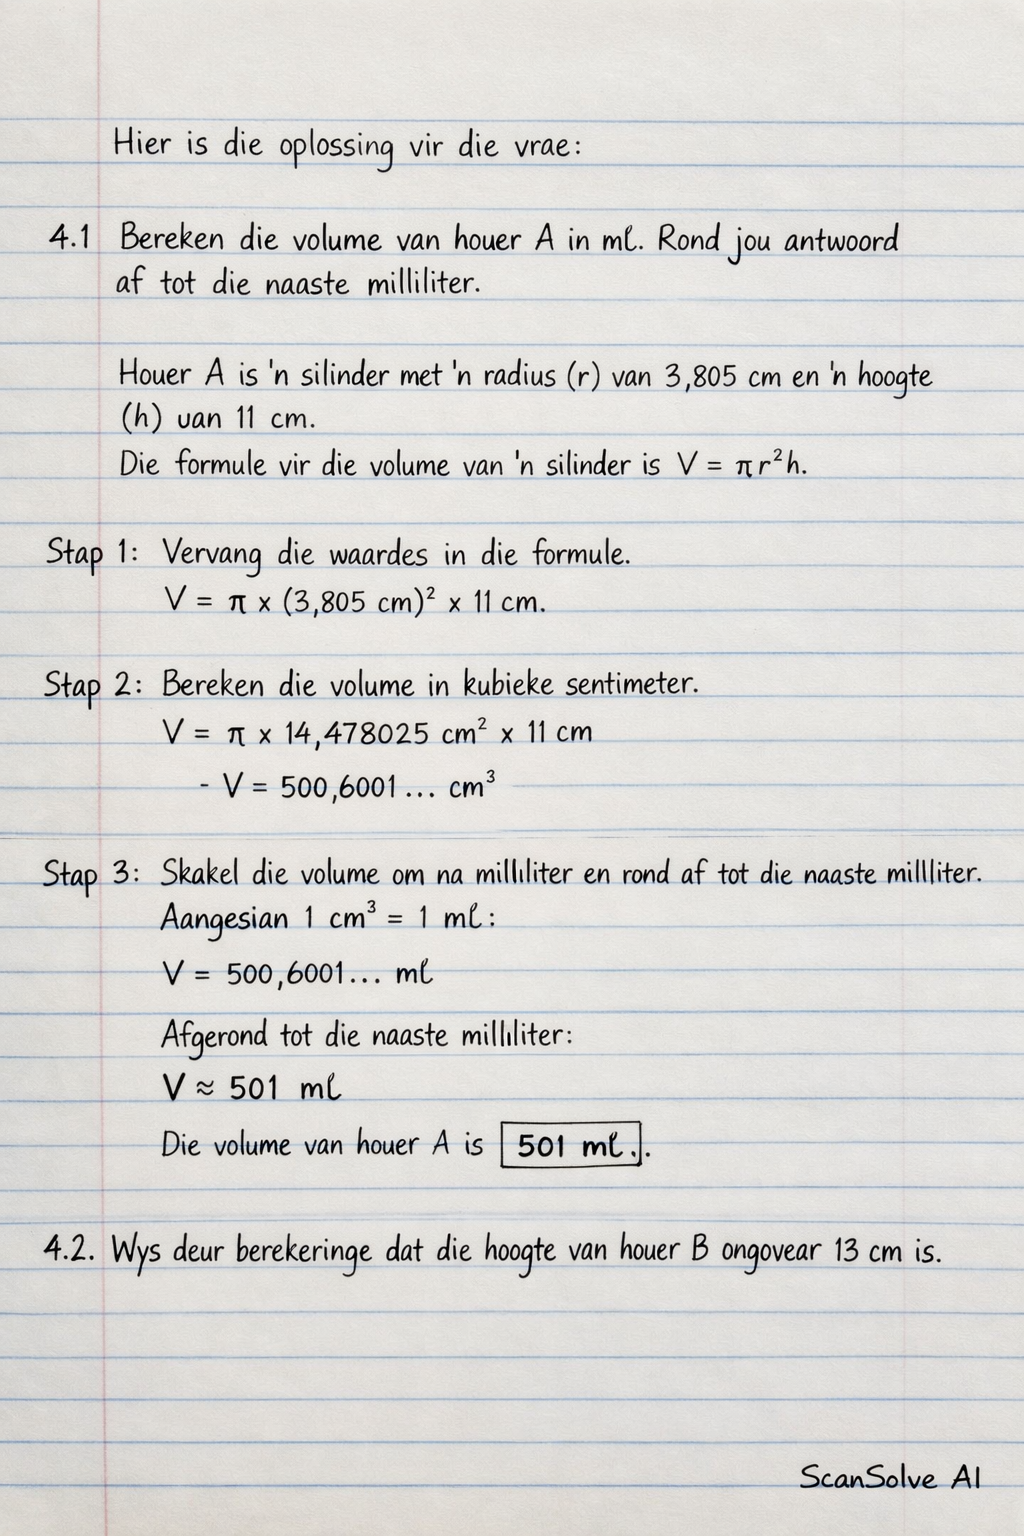 Hier is die oplossing vir die vrae:
4.1 Bereken die volume van houer A in mℓ. Rond jou antwoord
af tot die naaste milliliter.
Houer A is 'n silinder met 'n radius (r) van 3,805 cm en 'n hoogte
(h) uan 11 cm.
Die formule vir die volume van 'n silinder is V = πr²h.
Stap 1: Vervang die waardes in die formule.
V = π x (3,805 cm)² x 11 cm.
Stap 2: Bereken die volume in kubieke sentimeter.
V = π x 14,478025 cm² x 11 cm
- V = 500,6001... cm³
Stap 3: Skakel die volume om na milliliter en rond af tot die naaste millliter.
Aangesian 1 cm³ = 1 mℓ:
V = 500,6001... mℓ
Afgerond tot die naaste milliliter:
V ≈ 501 mℓ
Die volume van houer A is 501 mℓ..
4.2. Wys deur berekeringe dat die hoogte van houer B ongovear 13 cm is.
ScanSolve AI